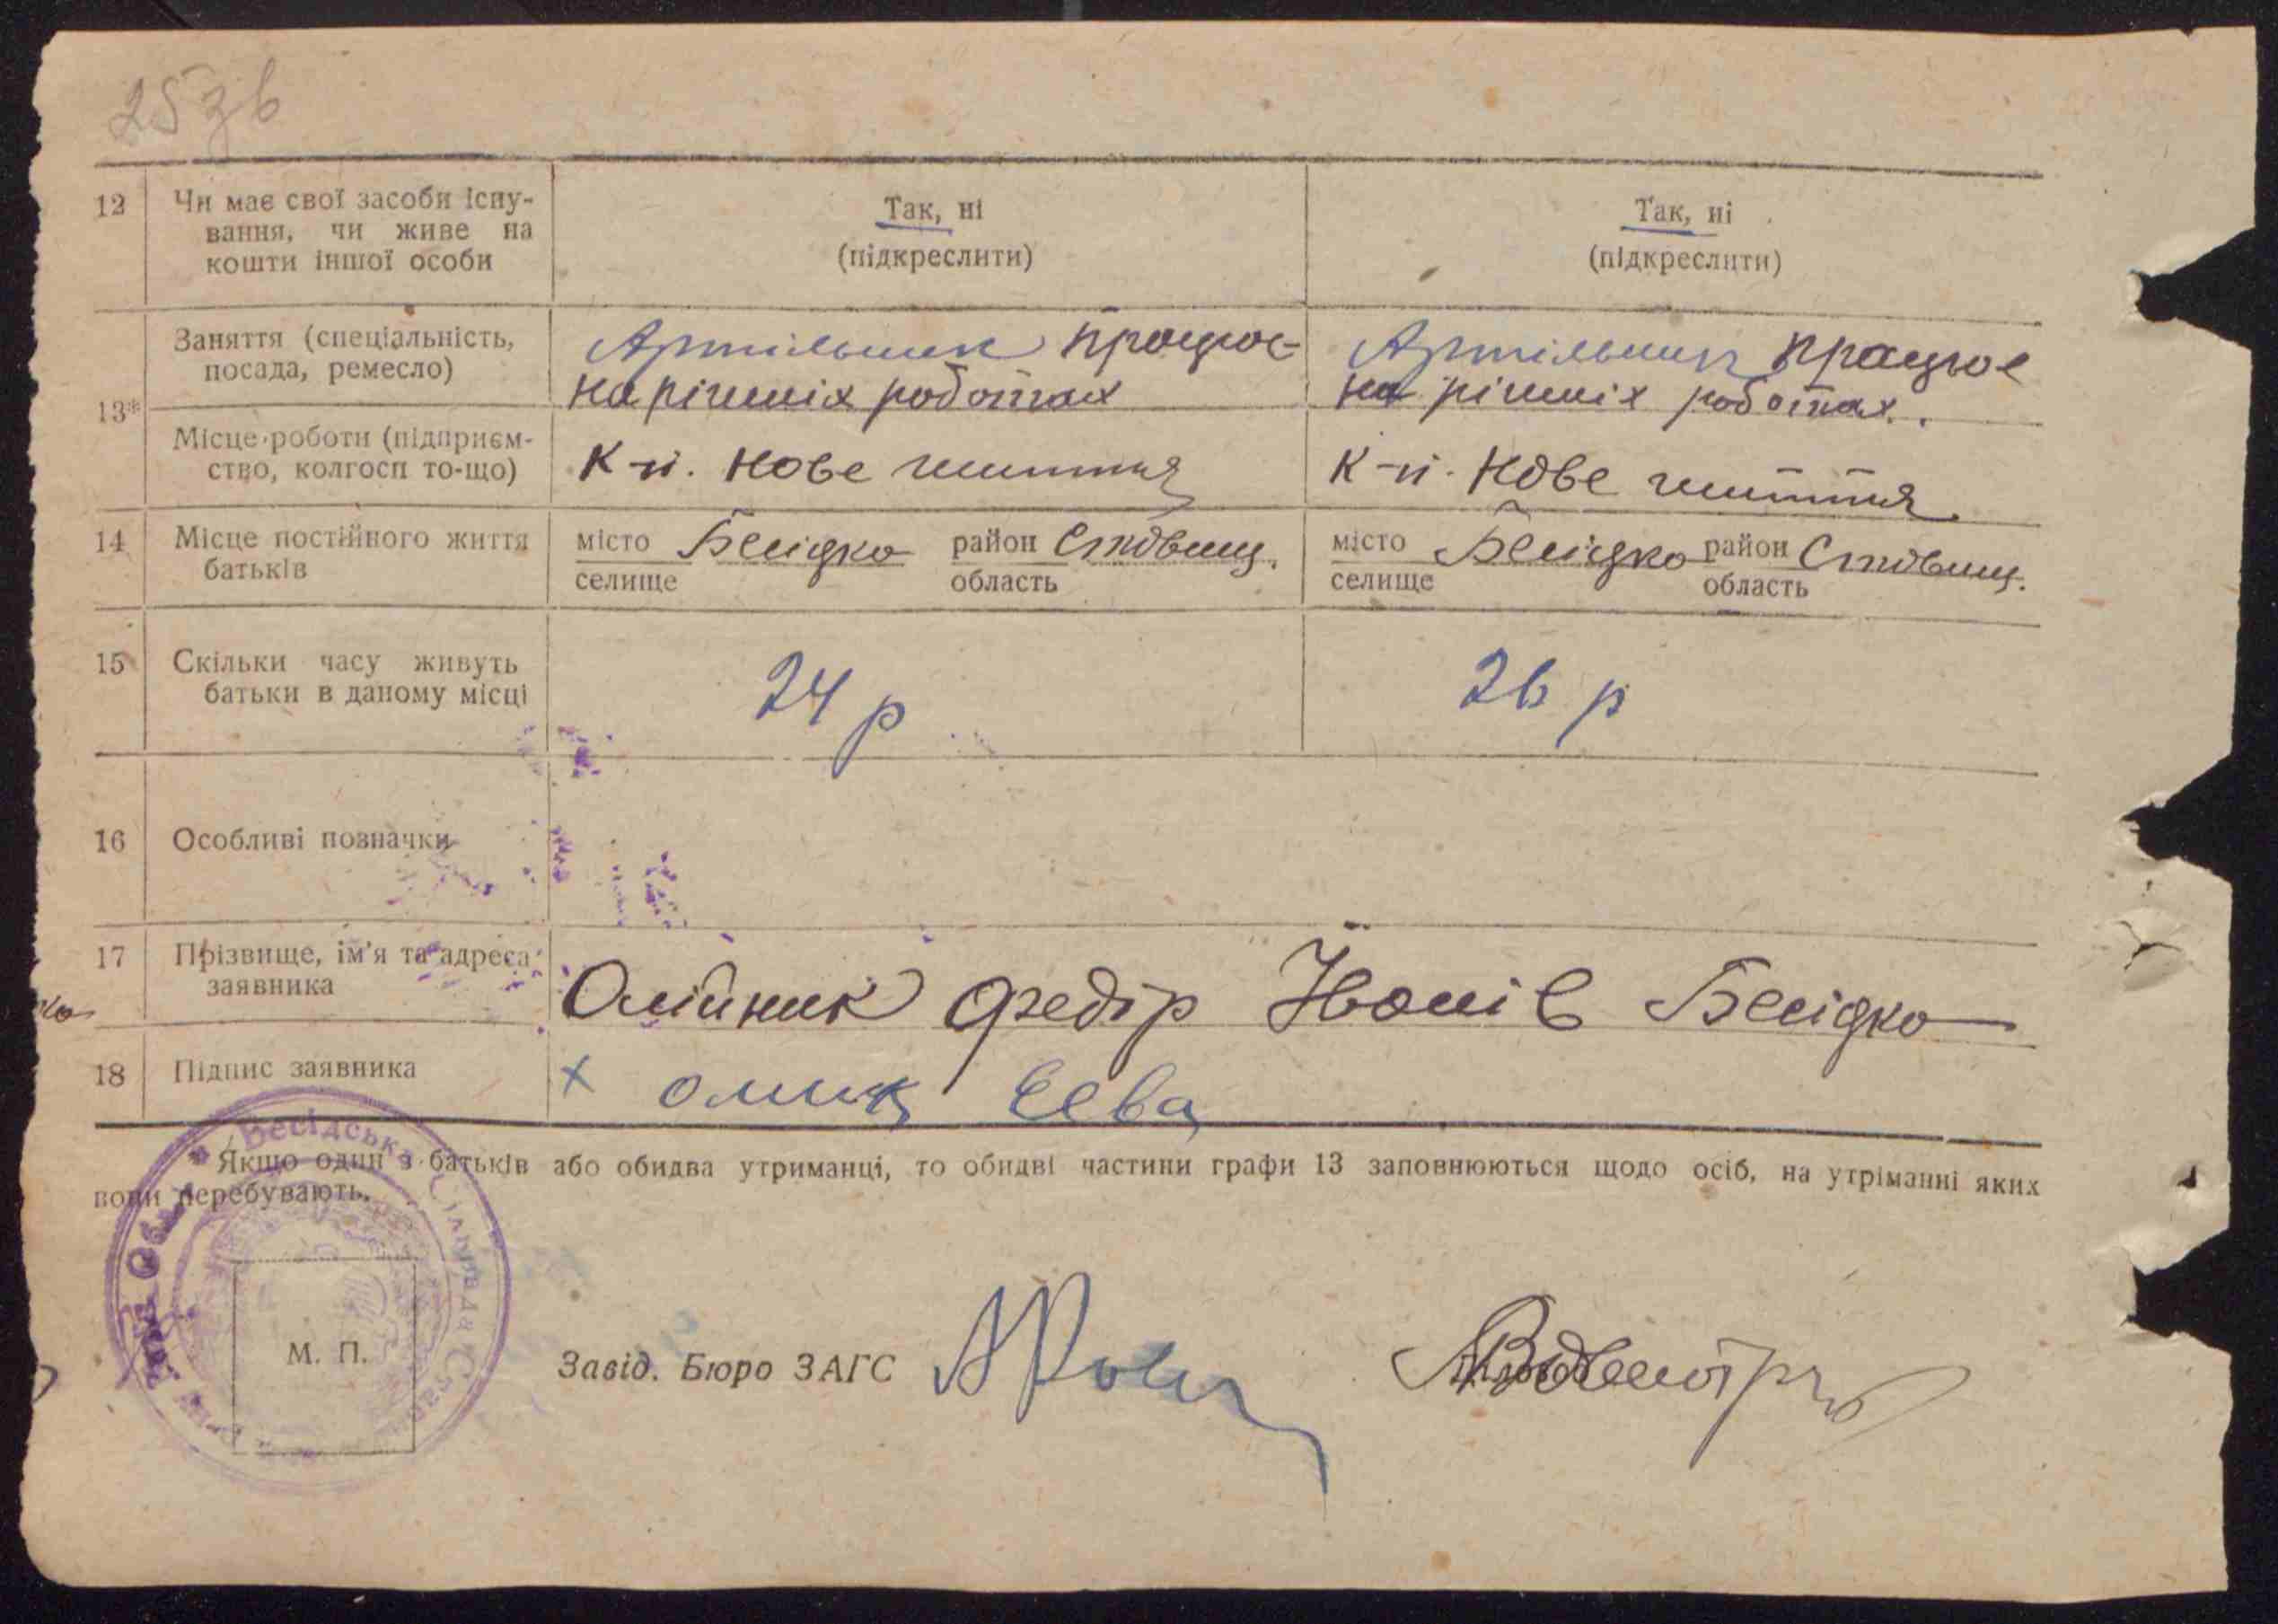 25зв
12 Чи має свої засоби існу- Так, ні Так, ні
вання, чи живе на
кошти іншої особи (підкреслити) (підкреслити)
Заняття (спеціальність, Артільник працює Артільник працює
посада, ремесло) на різних роботах на різних роботах.
13*
Місце роботи (підприєм-
ство, колгосп то-що) К-п. Нове життя К-п. Нове життя
14 Місце постійного життя місто Бесідко район Ставищ. місто Бесідко район Ставищ.
батьків селище область селище область
15 Скільки часу живуть 24 р 26 р
батьки в даному місці
16 Особливі позначки
17 Прізвище, ім'я та адреса Олійник Федір Бесідко
заявника
18 Підпис заявника х
Якщо один з батьків або обидва утриманці, то обидві частини графи 13 заповнюються щодо осіб, на утріманні яких
вони перебувають.
М. П.
Завід. Бюро ЗАГС